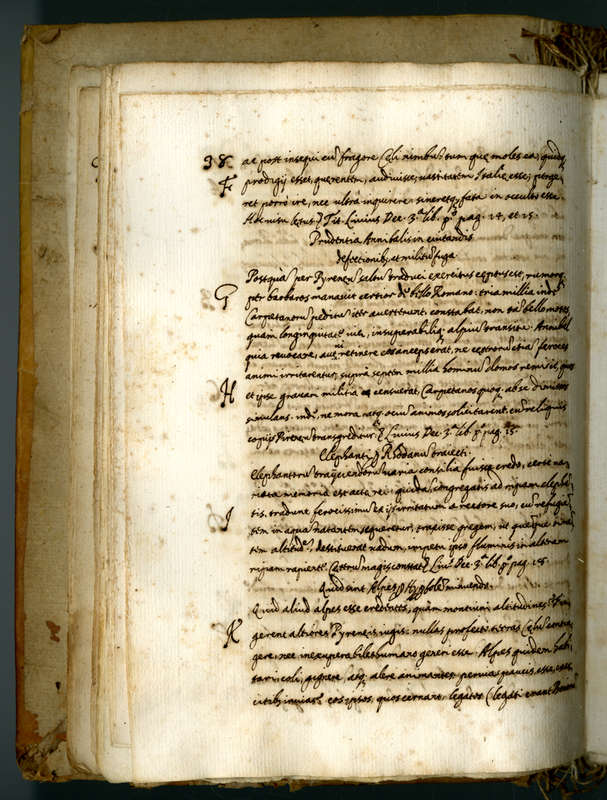 38. ac post insequi cũ fragore Cæli nimbus tum quæ moles ea, quidq
F prodigij esset, querentem, audivisse, vastitatem Italiæ esse; perge
ret porrò ire, nec ultra inquirere sineretq, fata in occulto esse.
Hoc visu letus. Tit. Livius Dec. 3ª lib. pº pag. 14. et 15.
Prudentia Annibalis in euitandis
defectionib, et militũ fuga
Postquã per Pyreneũ saltũ traduci exercitus ceptus est, rumorq
G per barbaros manauit certior de bello Romano: tria millia inde
Carpetanorũ peditũ iter auerterunt, constabat, non tã bello motos,
quam longinquitate uiæ, insuperabiliq alpiũ transitu. Annibal
quia reuocare, aut ui retinere eos anceps erat, ne ceterorũ etiã feroces
animi irritarentur, supra septem millia hominũ domos remisit, quos
H et ipse grauari militia censuerat, Carpetanos quoq ab se dimissos
simulans. inde, ne mora, atq ociũ animos solicitarent, cũ reliquis
copijs Pireneũ transgreditur. Livius Dec. 3ª lib. pº pag. 15.
Elephanti Rhodanũ traiecti.
Elephantorũ traijciendorũ uaria consilia fuisse credo, certe ua
riata memoria est actæ rei. quidã congregatis ad ripam elephã
I tis, tradunt ferocissimũ ex ijs irritatum a rectore suo, cũ refugiẽ
tem in aqua natantem sequeretur, traxisse gregem, ut quemque timẽ
tem altitudẽ destitueret uadum, impetu ipso fluminis in alteram
ripam rapiente. Cæterũ magis constat Liu. Dec. 3ª lib. pº pag. 18.
Quid sint Alpes Hypbole minuendo.
Quid aliud alpes esse credentes, quàm montium altitudines? Fin
K gerent altiores Pyrenei iugis: nullas profectò terras Cælũ contin
gere, nec inexuperabiles humano generi esse. Alpes quidem habi
tari, coli, gignere, atq alere animantes. peruias paucis esse, exer
citib inuias? eos ipsos, quos cernant, legatos (legati erant Boiorũ